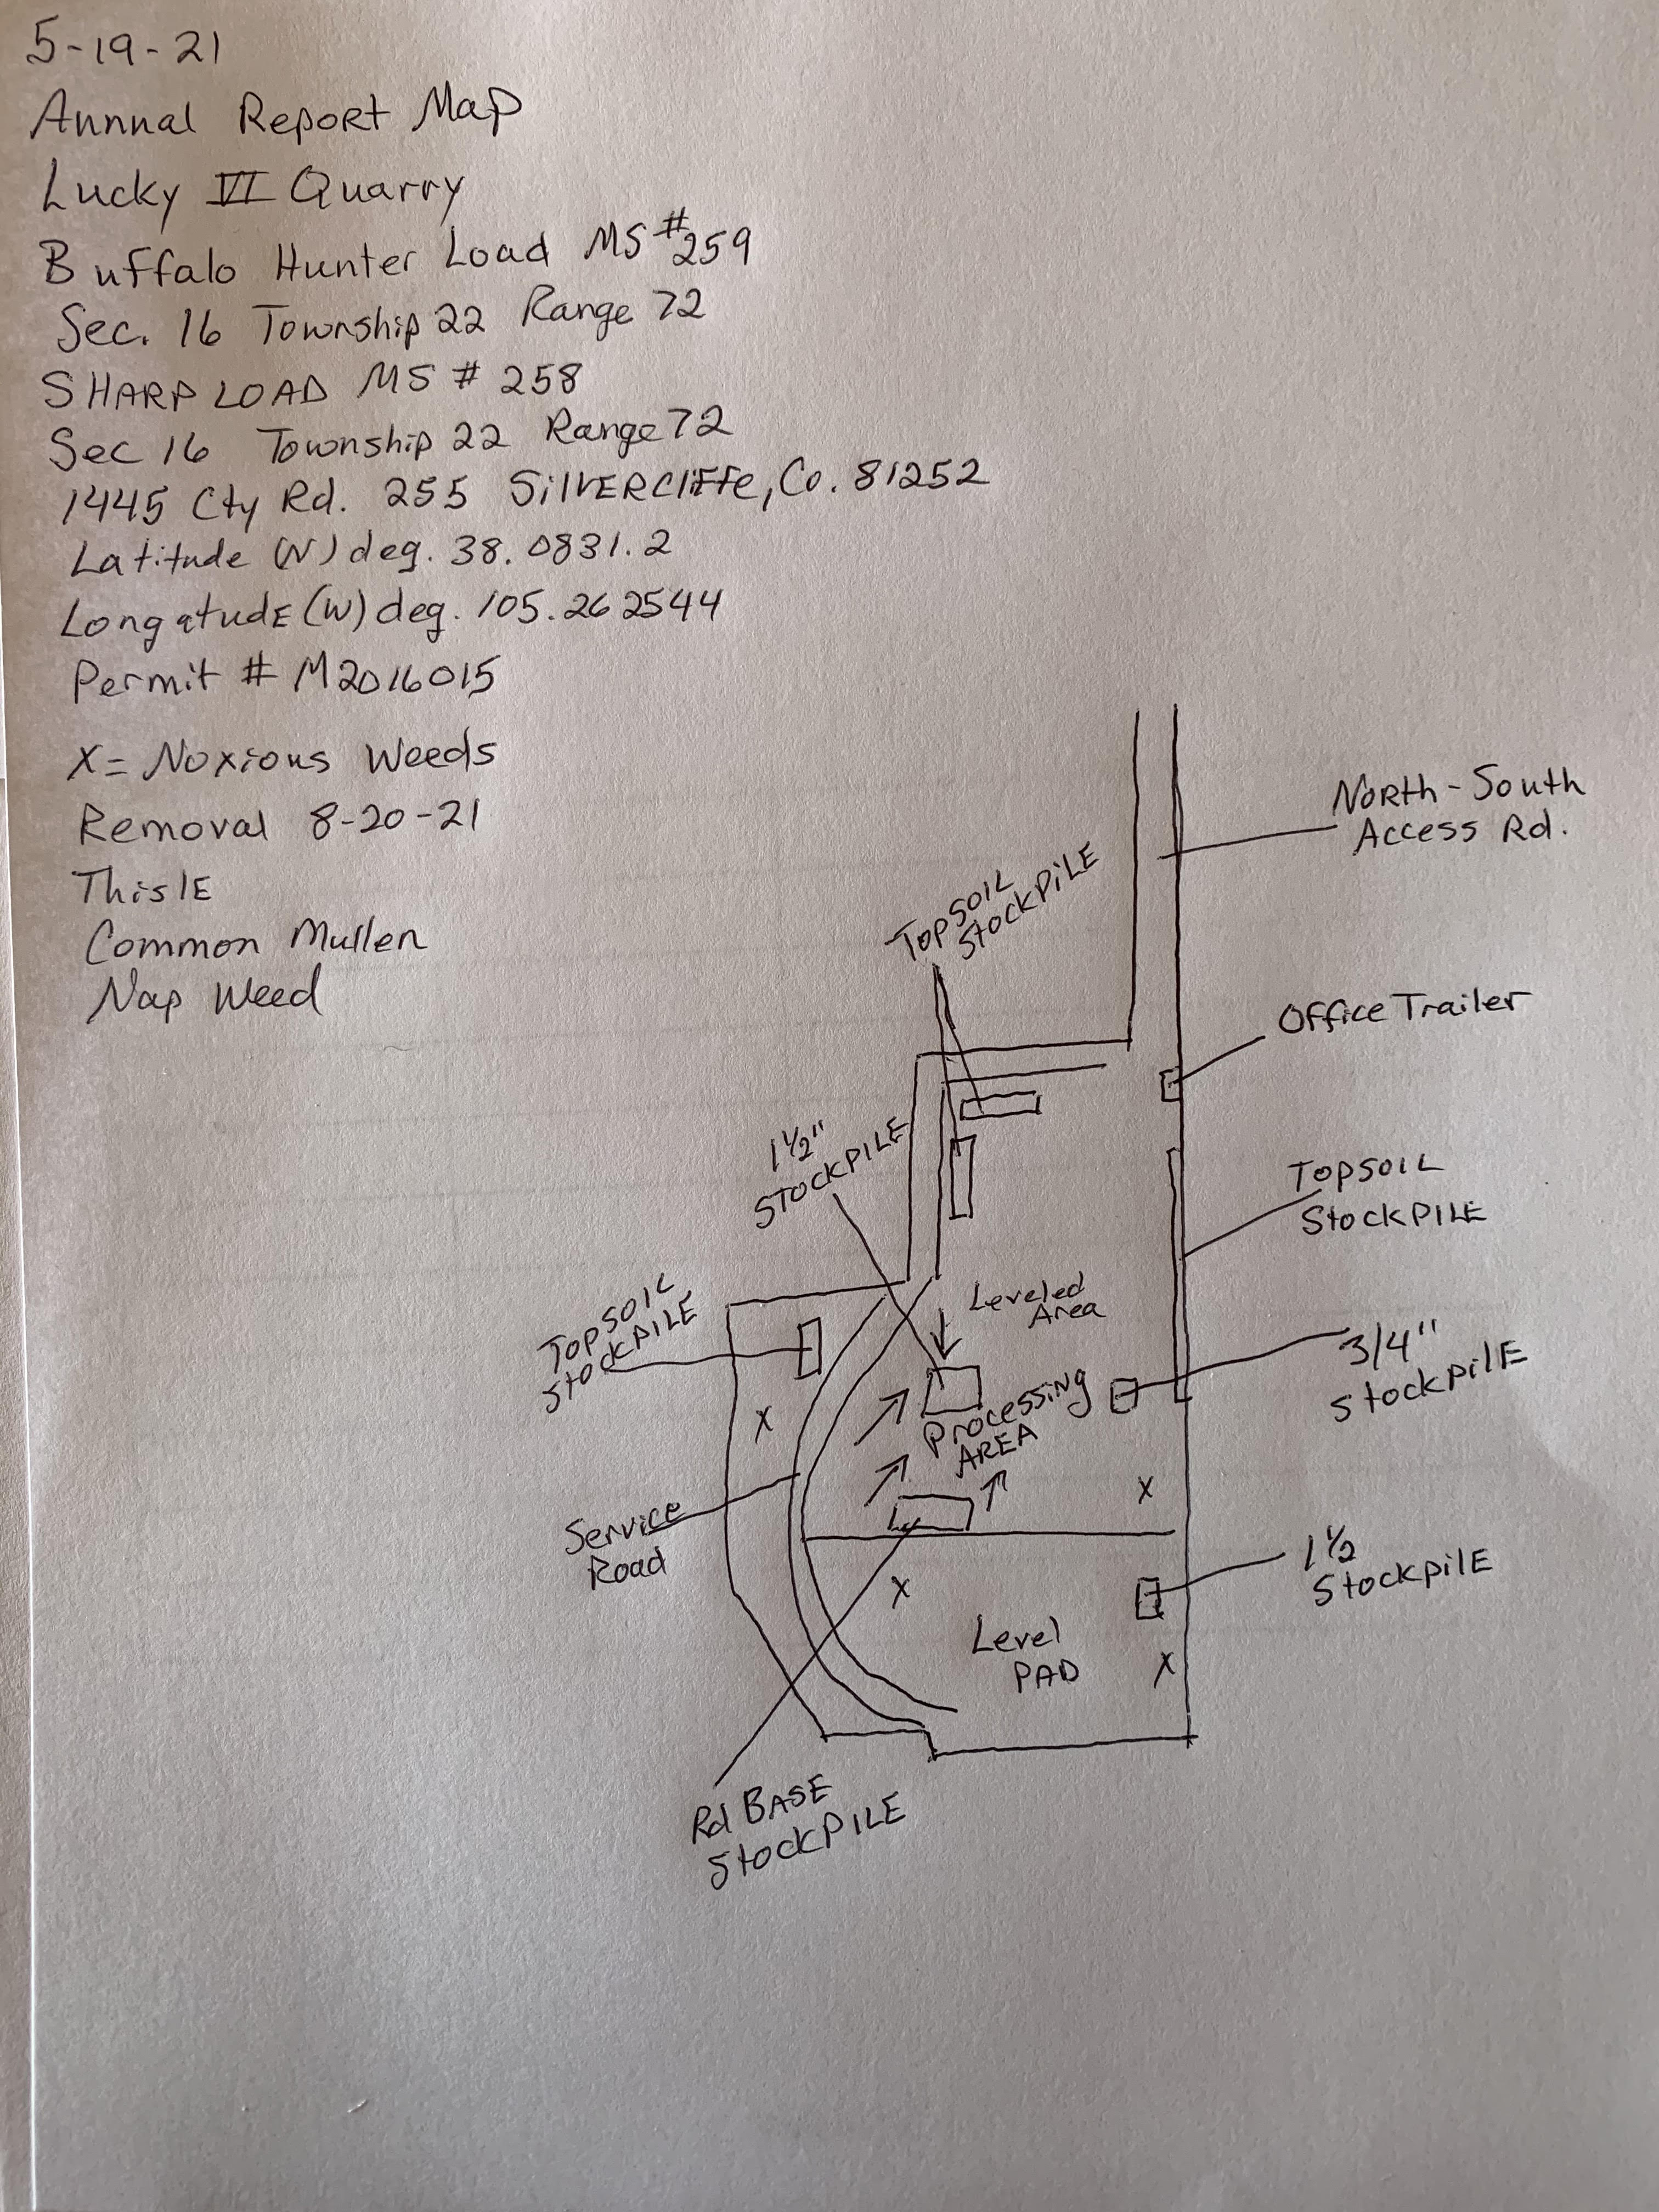 5-19-21
Annual Report Map
Lucky VI Quarry
Buffalo Hunter Load MS #259
Sec. 16 Township 22 Range 72
SHARP LOAD MS # 258
Sec 16 Township 22 Range 72
1445 Cty Rd. 255 SilVERCliFfe, Co. 81252
Latitude (N) deg. 38.0831.2
LongatudE (W) deg. 105.262544
Permit # M2016015
X= Noxious Weeds
Removal 8-20-21
ThislE
Common Mullen
Nap Weed
NORth-South
Access Rd.
TopSOIL
StockPiLE
Office Trailer
1 1/2"
STOCKPILE
TOPSOIL
StockPILE
Leveled
Area
TopSOIL
StockPILE
3/4"
StockpilE
Processing
AREA
X
X
Service
Road
1 1/2
StockpilE
X
Level
PAD
X
Rd BASE
StockPILE